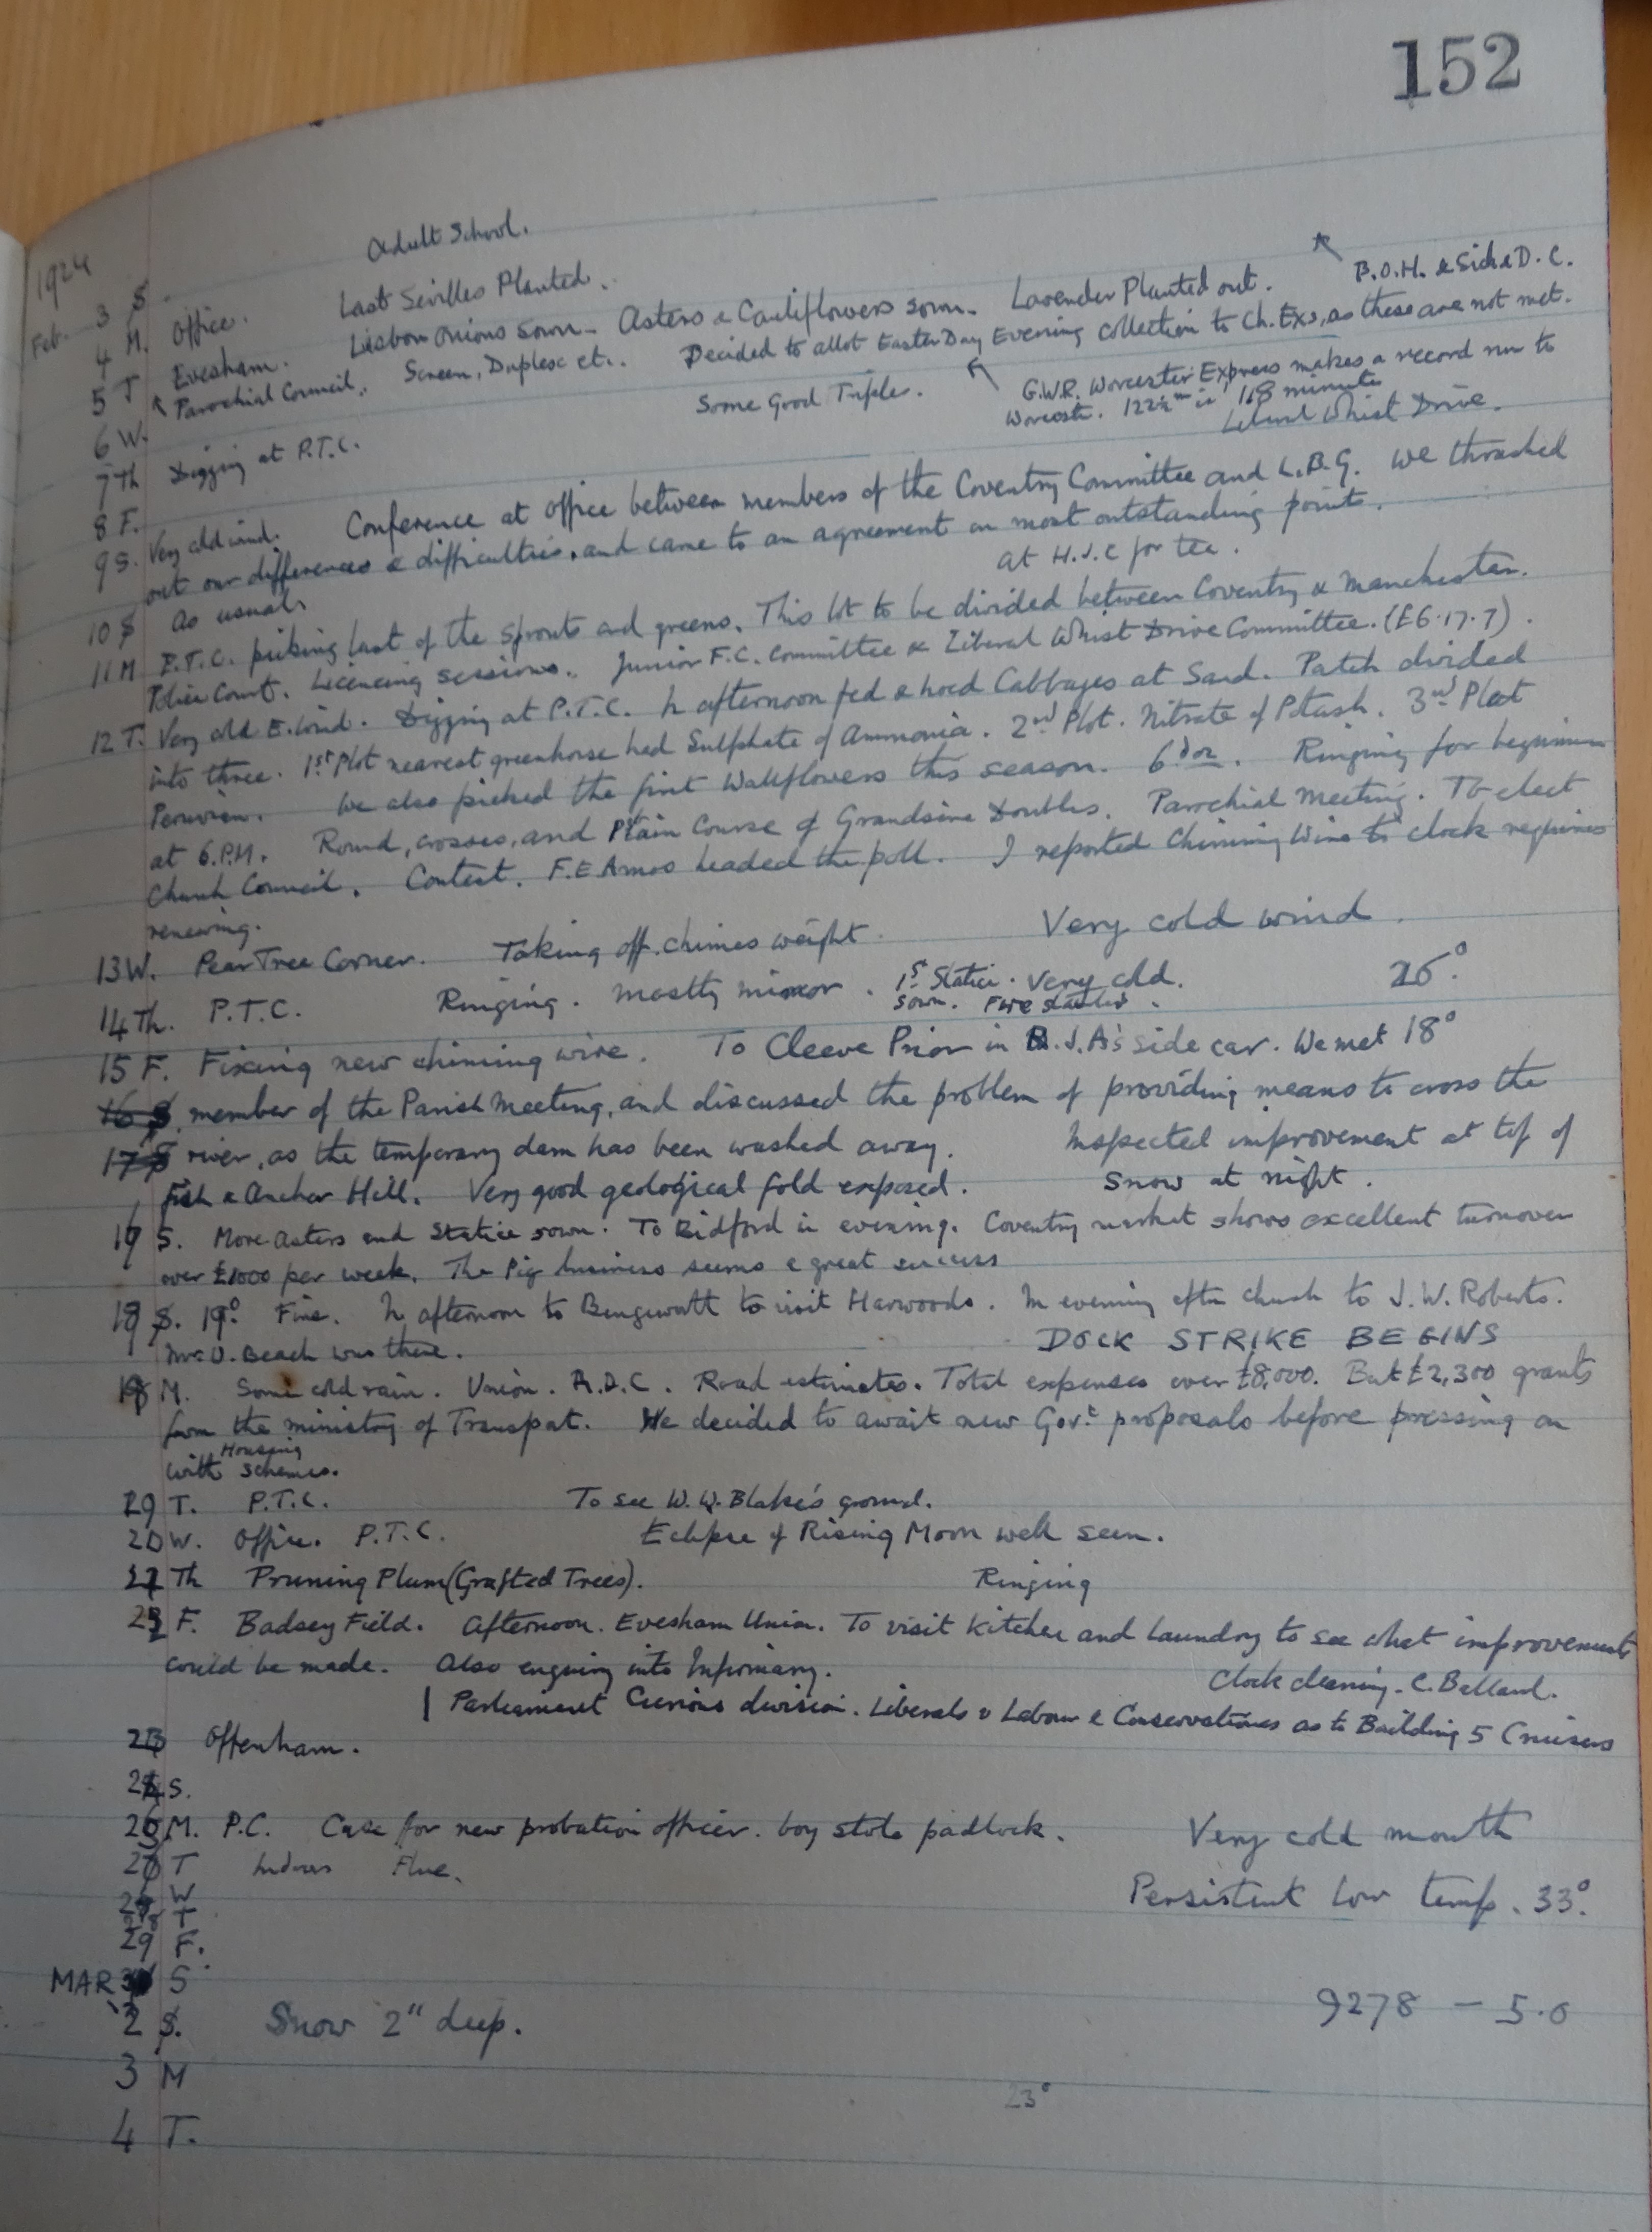 152
1924
Adult School.
Feb. 3 S.
4 M. Office. Last Sevilles Planted.
5 T Evesham. Lisbon onions sown. Asters & Cauliflowers sown. Lavender Planted out. B.O.H. & Side D.C.
Parochial Council. Screen, Duplex etc. Decided to allot Easter Day Evening collection to Ch. Exs, as these are not met.
6 W. Some Good Triples. G.W.R. Worcester Express makes a record run to
7 Th Digging at P.T.C. Worcester. 122½ m in 118 minutes
8 F. Liberal Whist Drive.
9 S. Very cold wind. Conference at office between members of the Coventry Committee and L.B.G. We thrashed
out our differences & difficulties, and came to an agreement on most outstanding points.
10 S As usual. at H.J.C for tea.
11 M P.T.C. picking last of the sprouts and greens. This lot to be divided between Coventry & Manchester.
Police Court. Licencing sessions. Junior F.C. Committee & Liberal Whist Drive Committee. (£6.17.7).
12 T. Very cold E. Wind. Digging at P.T.C. In afternoon fed & hoed Cabbages at Sand. Patch divided
into three. 1st Plot nearest greenhouse had Sulphate of Ammonia. 2nd Plot. Nitrate of Potash. 3rd Plot
Peruvian. We also picked the first Wallflowers this season. 6 doz. Ringing for beginners
at 6.P.M. Round, crosses, and Plain Course of Grandsire Doubles. Parochial Meeting. To elect
Church Council. Contest. F.E Amos headed the poll. I reported Chiming Wire to clock requires
renewing.
13 W. Pear Tree Corner. Taking off chimes weight. Very cold wind.
14 Th. P.T.C. Ringing. Mostly minor. 1st Statice sown. Very cold. Fire started. 26°.
15 F. Fixing new chiming wire. To Cleeve Prior in R.J.A's side car. We met 18°
16 S member of the Parish Meeting, and discussed the problem of providing means to cross the
17 S river, as the temporary dam has been washed away. Inspected improvement at top of
Fish & Anchor Hill. Very good geological fold exposed. Snow at night.
16 S. More Asters and Statice sown. To Bidford in evening. Coventry market shows excellent turnover
over £1000 per week. The Pig business seems a great success
17 S. 19° Fine. In afternoon to Bengeworth to visit Harwoods. In evening after church to J.W. Roberts.
Mrs U. Beach was there. DOCK STRIKE BEGINS
18 M. Some cold rain. Union. R.D.C. Road estimates. Total expenses over £8,000. But £2,300 grants
from the ministry of Transport. We decided to await new Govt. proposals before pressing on
with Housing schemes.
19 T. P.T.C. To see W.W. Blake's ground.
20 W. Office. P.T.C. Eclipse of Rising Moon well seen.
21 Th Pruning Plum (Grafted Trees). Ringing
22 F. Badsey Field. Afternoon. Evesham Union. To visit kitchen and laundry to see what improvements
could be made. Also enquiry into Infirmary. Clock cleaning. C. Ballard.
Parliament Curious division. Liberals v Labour & Conservatives as to Building 5 Cruisers
23 Offenham.
24 S.
25 M. P.C. Case for new probation officer. boy stole padlock. Very cold month
26 T Indoors Flue. Persistent low temp. 33°.
27 W
28 T
29 F.
MAR 1 S
2 S. Snow 2" deep. 9278 – 5.0
3 M 23°
4 T.